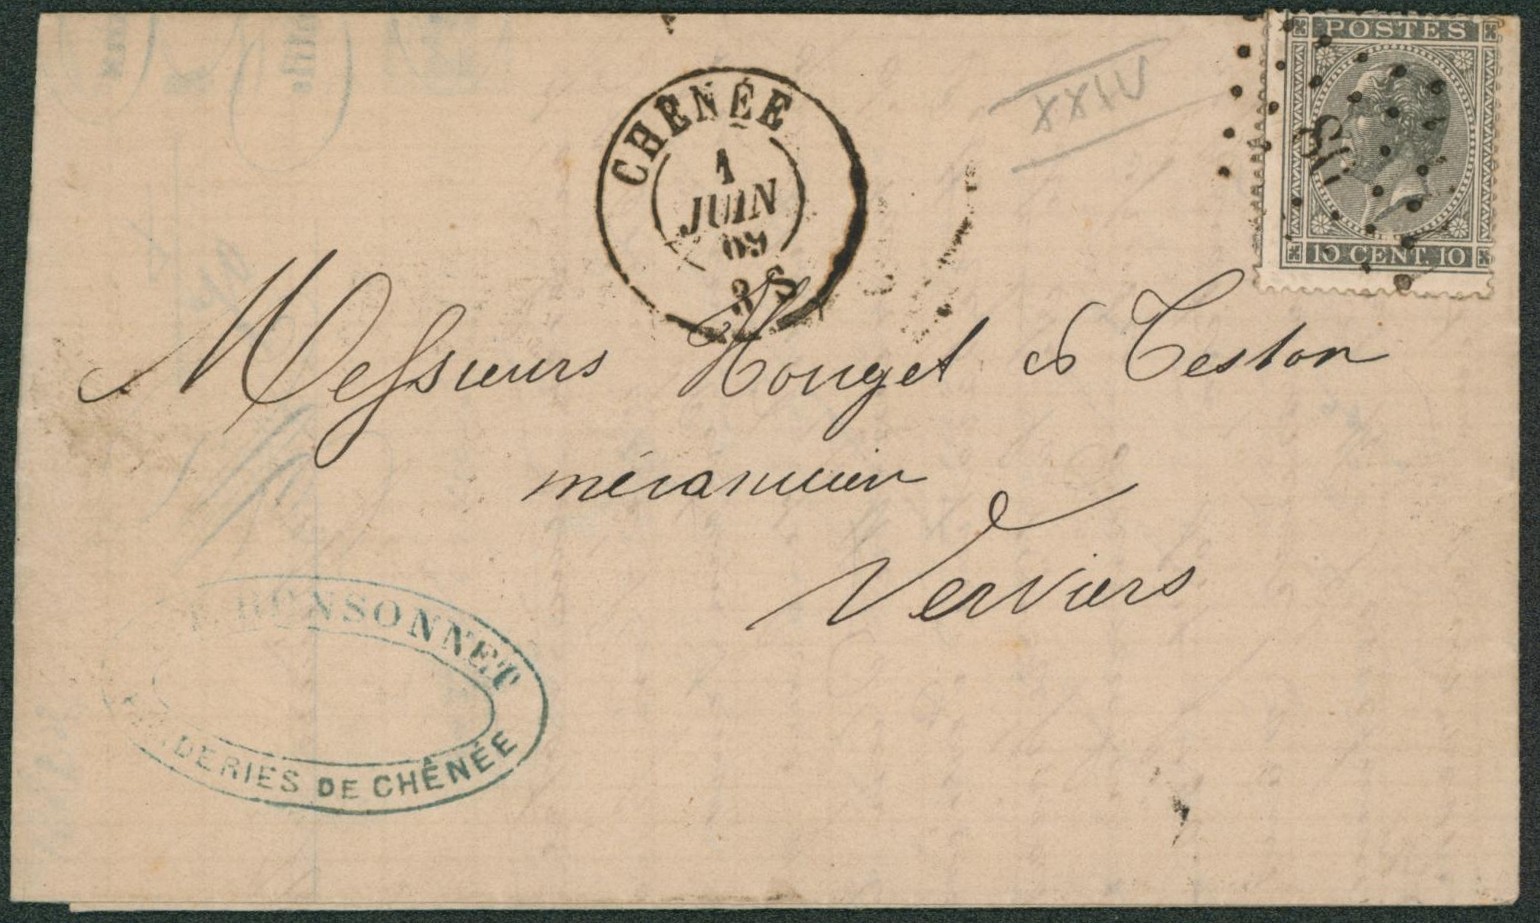 POSTES
10 CENT. 10
CHENÉE
1
JUIN
69
3 S
Messieurs Houget & Teston
mécanicien
Verviers
BONSONNET
DERIES DE CHÊNÉE